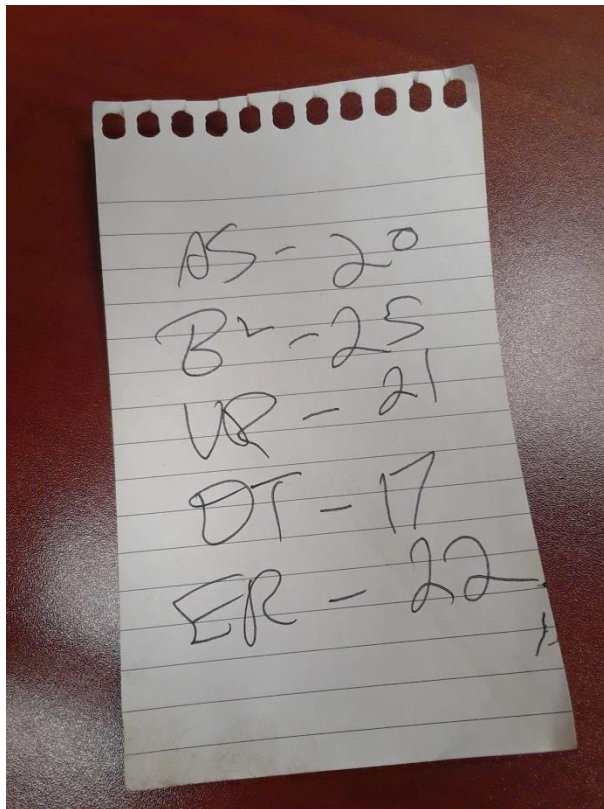 AS - 20
- 25
- 21
DT - 17
ER - 22